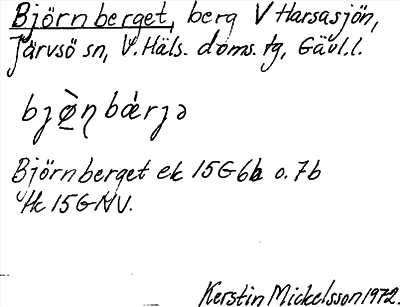 Björnberget, berg V Harsasjön,
Järvsö sn, V. Häls. doms. tg, Gävl.l.
bjø̀ṇbæ̀rjə
Björnberget ek 15G6b o. 7b
Hk 15G NV.
Kerstin Mickelsson 1972.